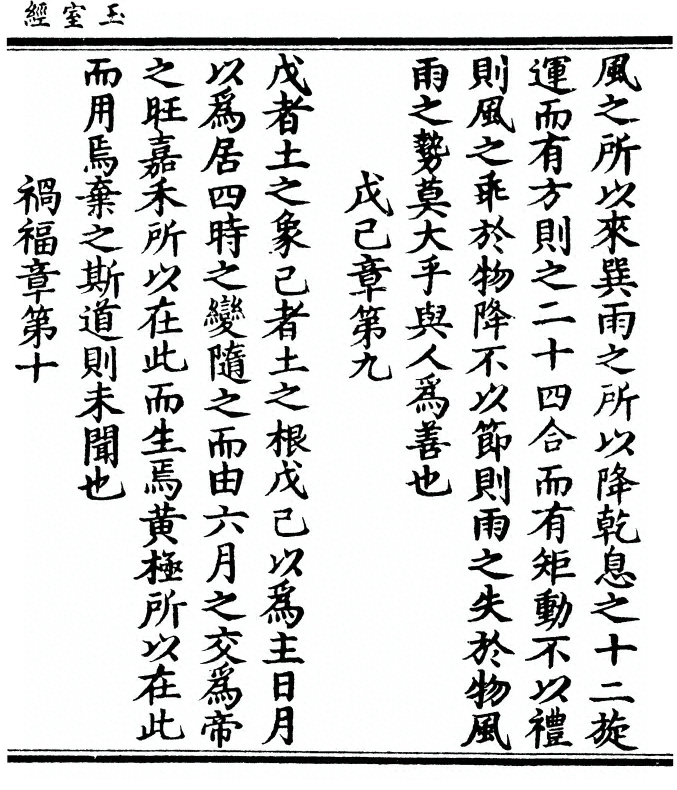 玉室經
風之所以來巽雨之所以降乾息之十二旋
運而有方則之二十四合而有矩動不以禮
則風之乖於物降不以節則雨之失於物風
雨之勢莫大乎與人爲善也
戊己章第九
戊者土之象己者土之根戊己以爲主日月
以爲居四時之變隨之而由六月之交爲帝
之旺嘉禾所以在此而生焉黃極所以在此
而用焉棄之斯道則未聞也
禍福章第十